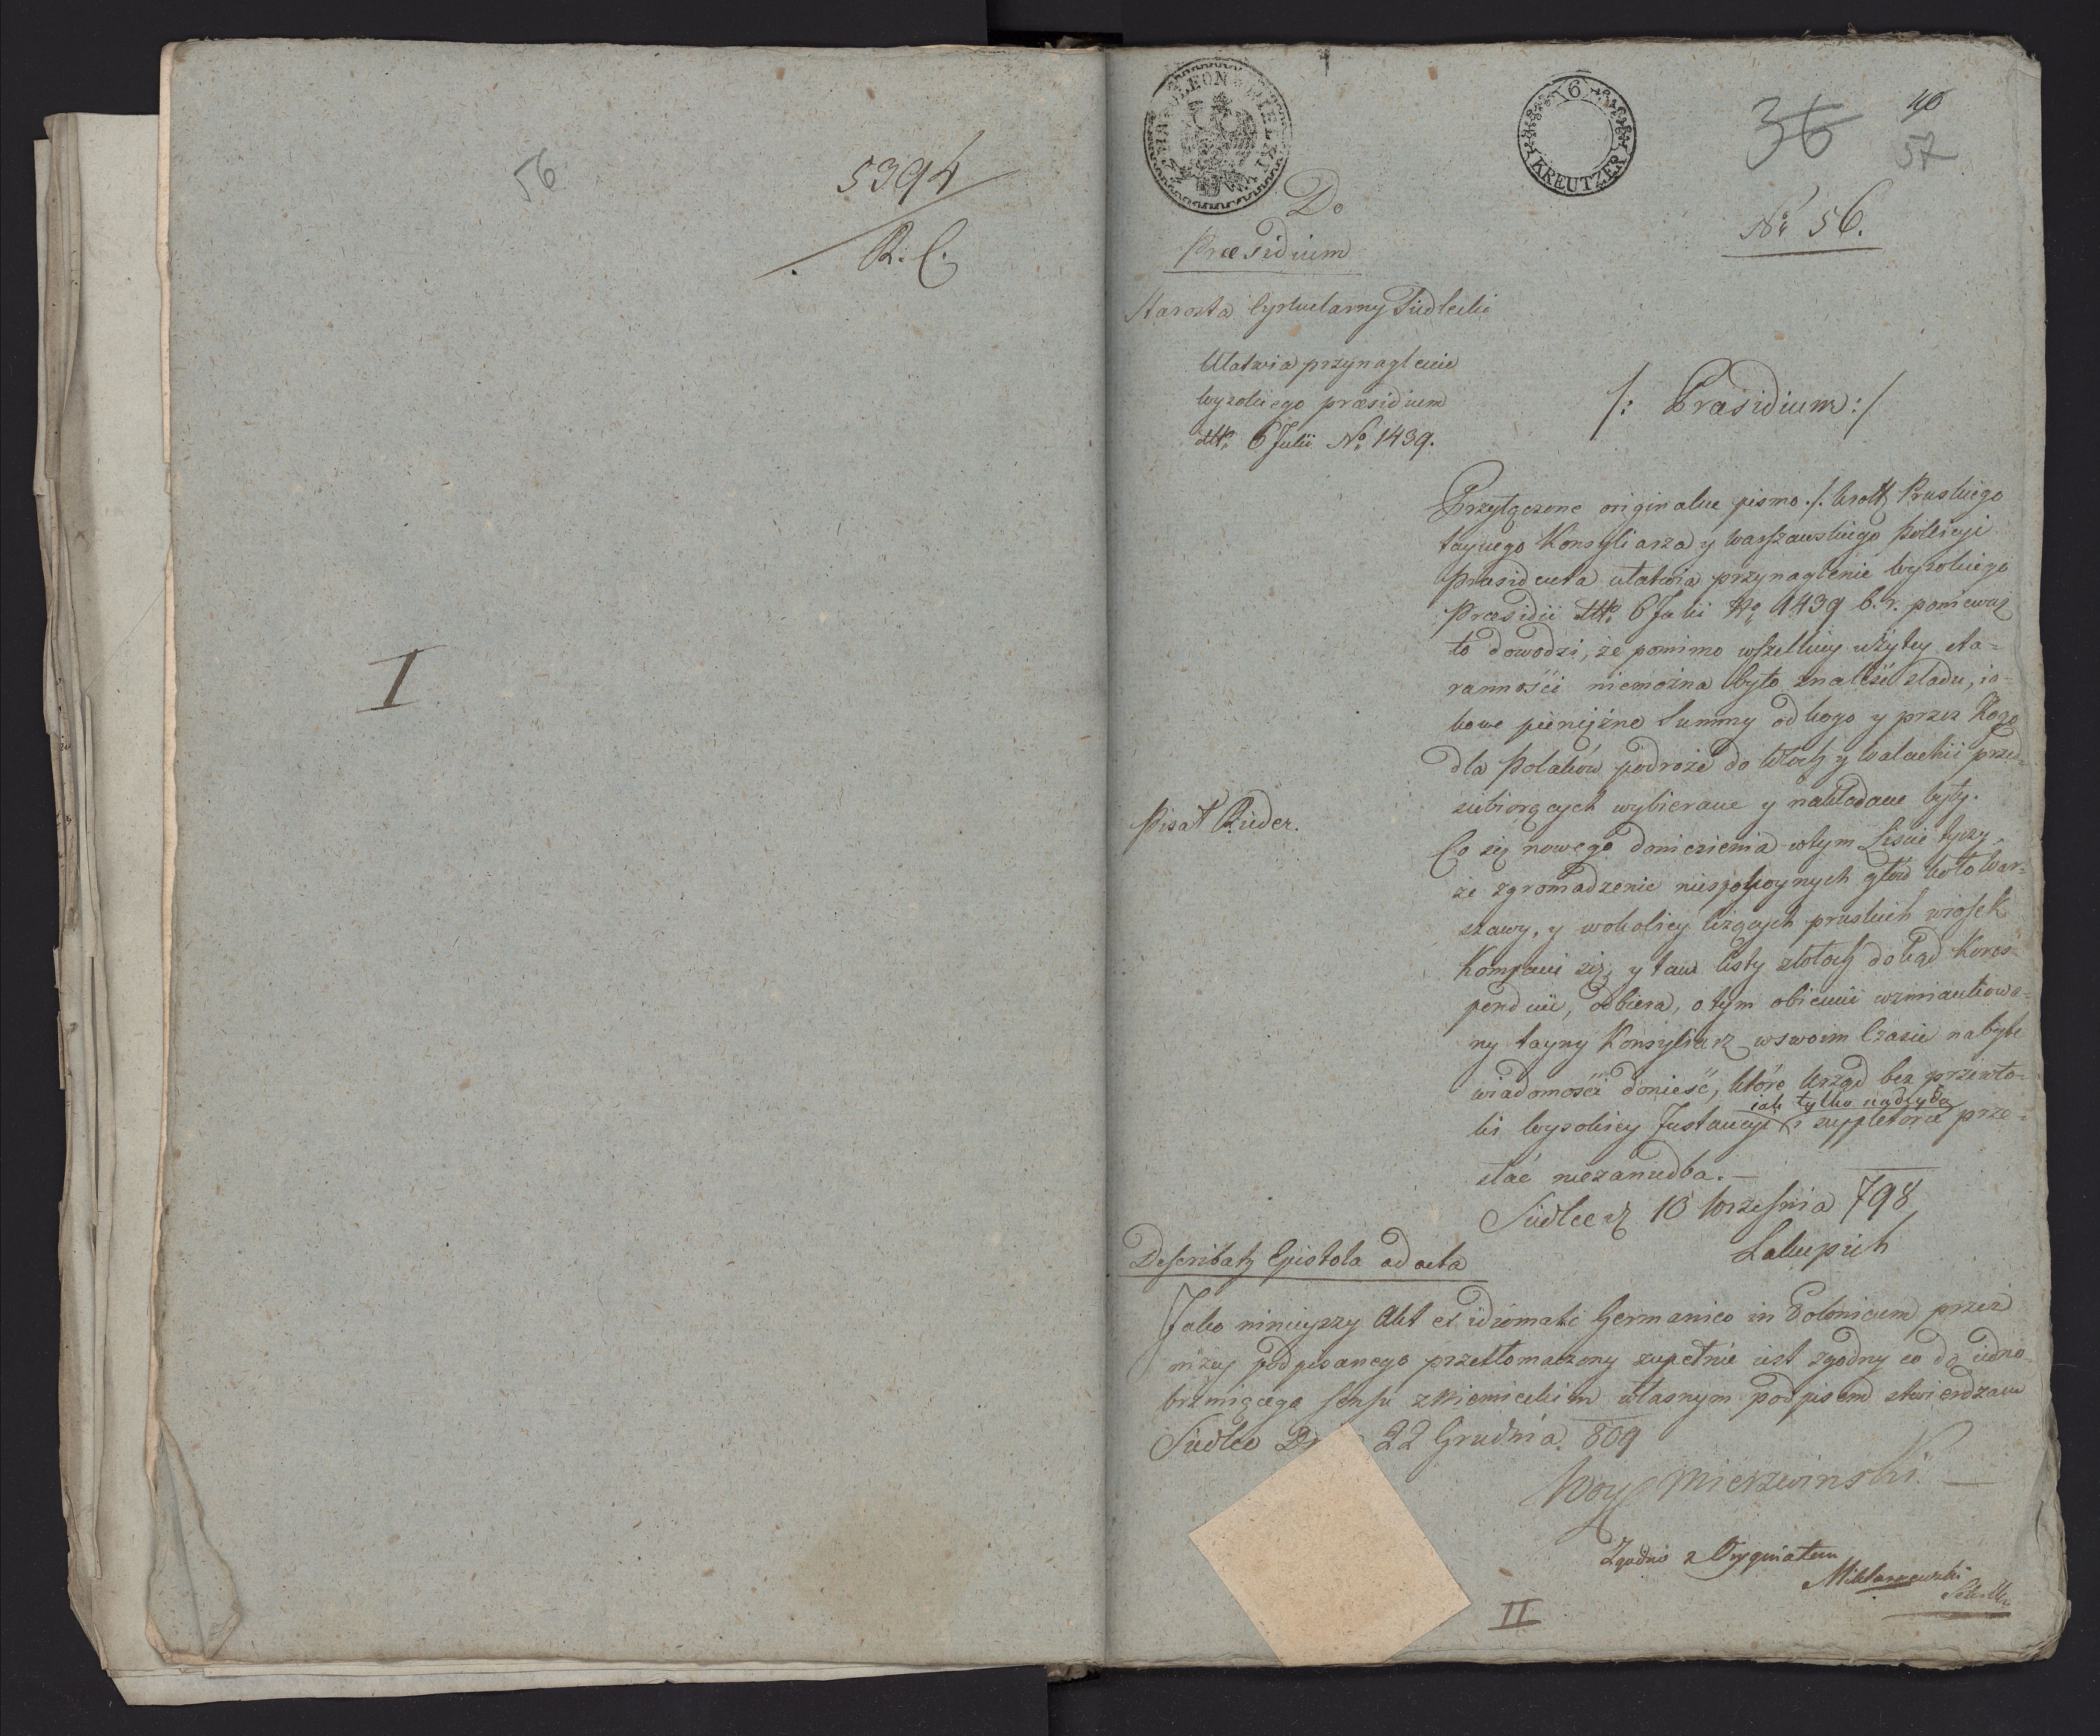 56
5394
R. C.
I
NAPOLEON WIELKI
6
KREUTZER
36
40
57
No 56.
Do
Præsidium
Starosta Cyrkularny Siedlecki
Ułatwia przynaglenie
wysokiego præsidium
dtto 6 Julii No 1439.
/: Præsidium :/
Przyłączone originalne pismo ./. Król. Pruskiego
taynego Konsyliarza y Warszawskiego Policyi
Præsidenta ułatwia przynaglenie wysokiego
Præsidii dtto 6 Julii No 1439 b. r. poniewaz
to dowodzi, że pomimo wszelkiey użytey sta=
rannosći niemożna było znaleść sladu, ia-
kowe pieniężne Summy od kogo y przez Kogo
dla Polaków podroże do Włoch y Walachii przed=
siebiorących wybierane y nakładane były.
Co się nowego doniesienia wtym Liscie tyczy,
że zgromadzenie niespokoynych głów koło War=
szawy, y wokolicy leżących pruskich wiosek
Kompani się, y tam listy
pendencie, odbiera, o tym obiecuie wzmiankowa=
ny tayny Konsyliarz wswoim Czasie nabyte
wiadomosći doniesć, które Urząd bez przewło=
iak tylko nadeyda
ki wysokiey Instancyi suppletorie prze=
słać niezaniedba. —
Siedlce d. 10 Wrzesnia 798
Pisał Rieder.
Describatr Epistola ad acta
Jako ninieyszy Akt ex idiomate Germanico in Polonicum przez
niżey podpisanego przetłomaczony zupełnie iest zgodny co do iedno
brzmiącego sensu zNiemieckim własnym podpisem stwierdzam
Siedlce 22 Grudnia 809
Woy Mierzwinski. —
Zgodno z Oryginałem
Miklaszewski
II